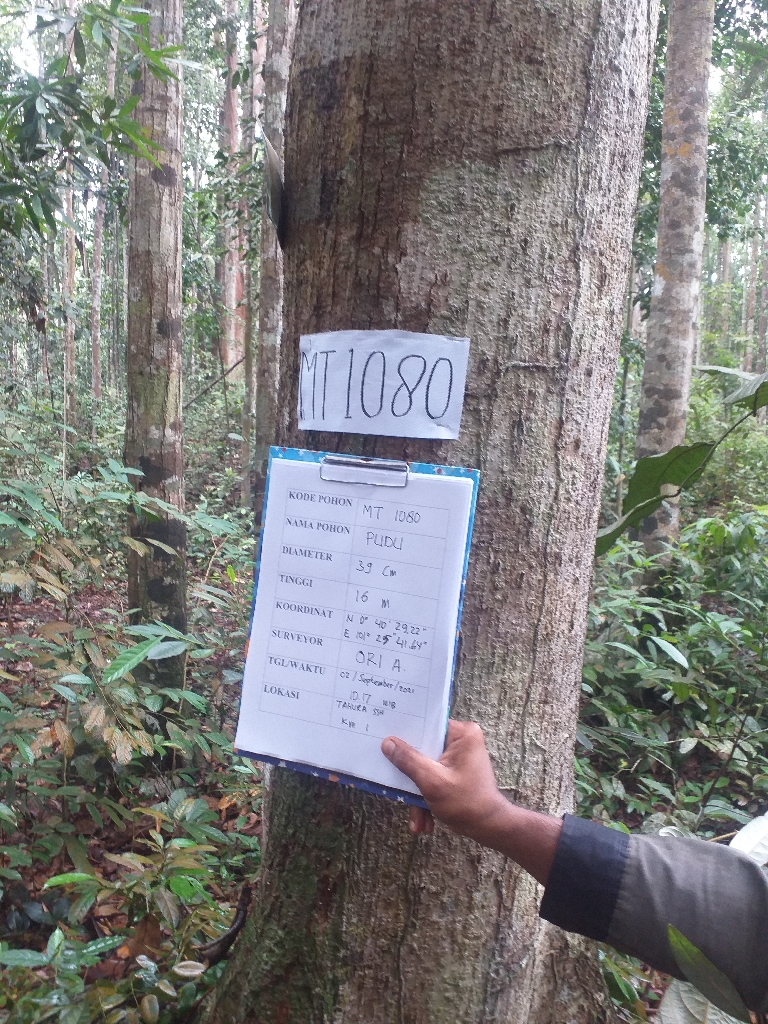 MT 1080
KODE POHON MT 1080
NAMA POHON PUDU
DIAMETER 39 Cm
TINGGI 16 M
KOORDINAT N 0° 40' 29,22"
E 101° 25" 41,64"
SURVEYOR ORI A
TGL/WAKTU 02/September/2021
10.17 WIB
LOKASI TAHURA SSH
KM 1